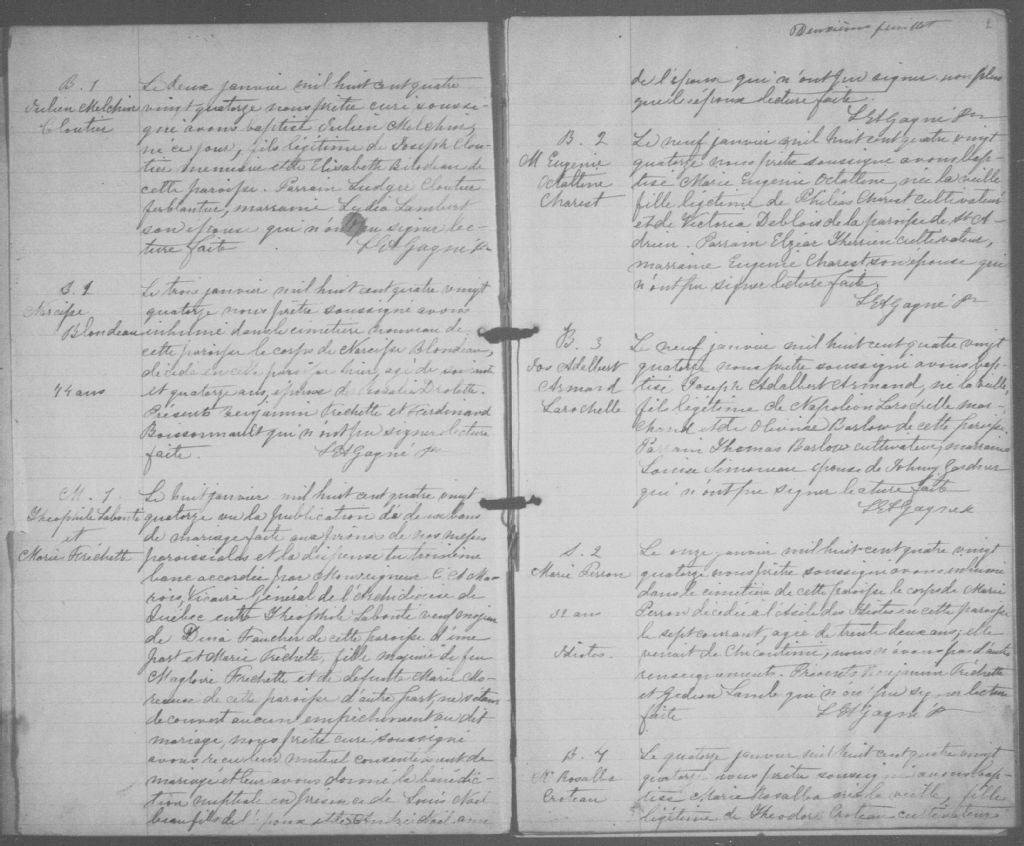 B. 1
Julien Melchior
Cloutier
Le deux janvier mil huit cent quatre
vingt quatorze nous prêtre curé soussi-
gné avons baptisé Julien Melchior,
né ce jour, fils légitime de Joseph Clou-
tier menuisier et de Elisabeth Bilodeau de
cette paroisse. Parrain Ludger Cloutier
ferblantier, marraine Lydia Lambert
son épouse qui n'ont pu signer lec-
ture faite. L E A Gagné Ptr
S. 1
Narcisse
Blondeau
44 ans
Le trois janvier mil huit cent quatre vingt
quatorze nous prêtre soussigné avons
inhumé dans le cimetière nouveau de
cette paroisse le corps de Narcisse Blondeau,
décédé en cette paroisse hier, agé de
et quatorze ans, époux de Drolette.
Présents Benjamin Fréchette et Ferdinand
Boissonnault qui n'ont pu signer lecture
faite. L E A Gagné Ptr
M. 1
Théophile Labonté
et
Marie Fréchette
Le huit janvier mil huit cent quatre vingt
quatorze vu la publication de deux bans
de mariage faite aux prônes de nos messes
paroissiales et la dispense du troisième
banc accordée par Monseigneur C. A. Ma-
rois, Vicaire Général de l'Archidiocèse de
Québec entre Théophile Labonté veuf majeur
de Dina Faucher de cette paroisse d'une
part et Marie Fréchette, fille majeure de feu
Magloire Fréchette et de défunte Marie Mo-
rency de cette paroisse d'autre part, ne s'étant
découvert aucun empêchement au dit
mariage, nous prêtre curé soussigné
avons reçu leur mutuel consentement de
mariage et leur avons donné la bénédic-
tion nuptiale en présence de Louis Noël
beaufils de l'époux et de André Noël ami
Deuxième feuillet
2
de l'époux qui n'ont pu signer non plus
que les époux lecture faite.
L E A Gagné Ptr
B. 2
M Eugenie
Octalline
Charest
Le neuf janvier mil huit cent quatre vingt
quatorze nous prêtre soussigné avons bap-
tisé Marie Eugenie Octalline, née la veille
fille légitime de Philéas Charest cultivateur
et de Victoria Deblois de la paroisse de St A-
drien. Parrain Elzear Therrien cultivateur,
marraine Eugenie Charest son épouse qui
n'ont pu signer lecture faite.
L E A Gagné Ptr
B. 3
Jos Adelbert
Armand
Larochelle
Le neuf janvier mil huit cent quatre vingt
quatorze nous prêtre soussigné avons bap-
tisé Joseph Adalbert Armand, né la veille,
fils légitime de Napoléon Larochelle mar-
chand et de Olivine Barlow de cette paroisse
Parrain Thomas Barlow cultivateur, marraine
Louise Simoneau épouse de Johnny Gardner
qui n'ont pu signer lecture faite
L E A Gagné Ptr
S. 2
Marie Perron
32 ans
Idiote
Le onze janvier mil huit cent quatre vingt
quatorze nous prêtre soussigné avons inhumé
dans le cimetière de cette paroisse le corps de Marie
Perron décédée à l'Asile des Idiotes en cette paroisse
le sept courant, agée de trente deux ans; elle
venait de Chicoutimi; nous n'avons pas d'autre
renseignements. Présents Benjamin Fréchette
et Gédéon Lamb qui n'ont pu signer lecture
faite L E A Gagné Ptr
B. 4
M Rosalba
Croteau
Le quatorze janvier mil huit cent quatre vingt
quatorze nous prêtre soussigné avons bap-
tisé Marie Rosalba née la veille, fille
légitime de Théodore Croteau cultivateur